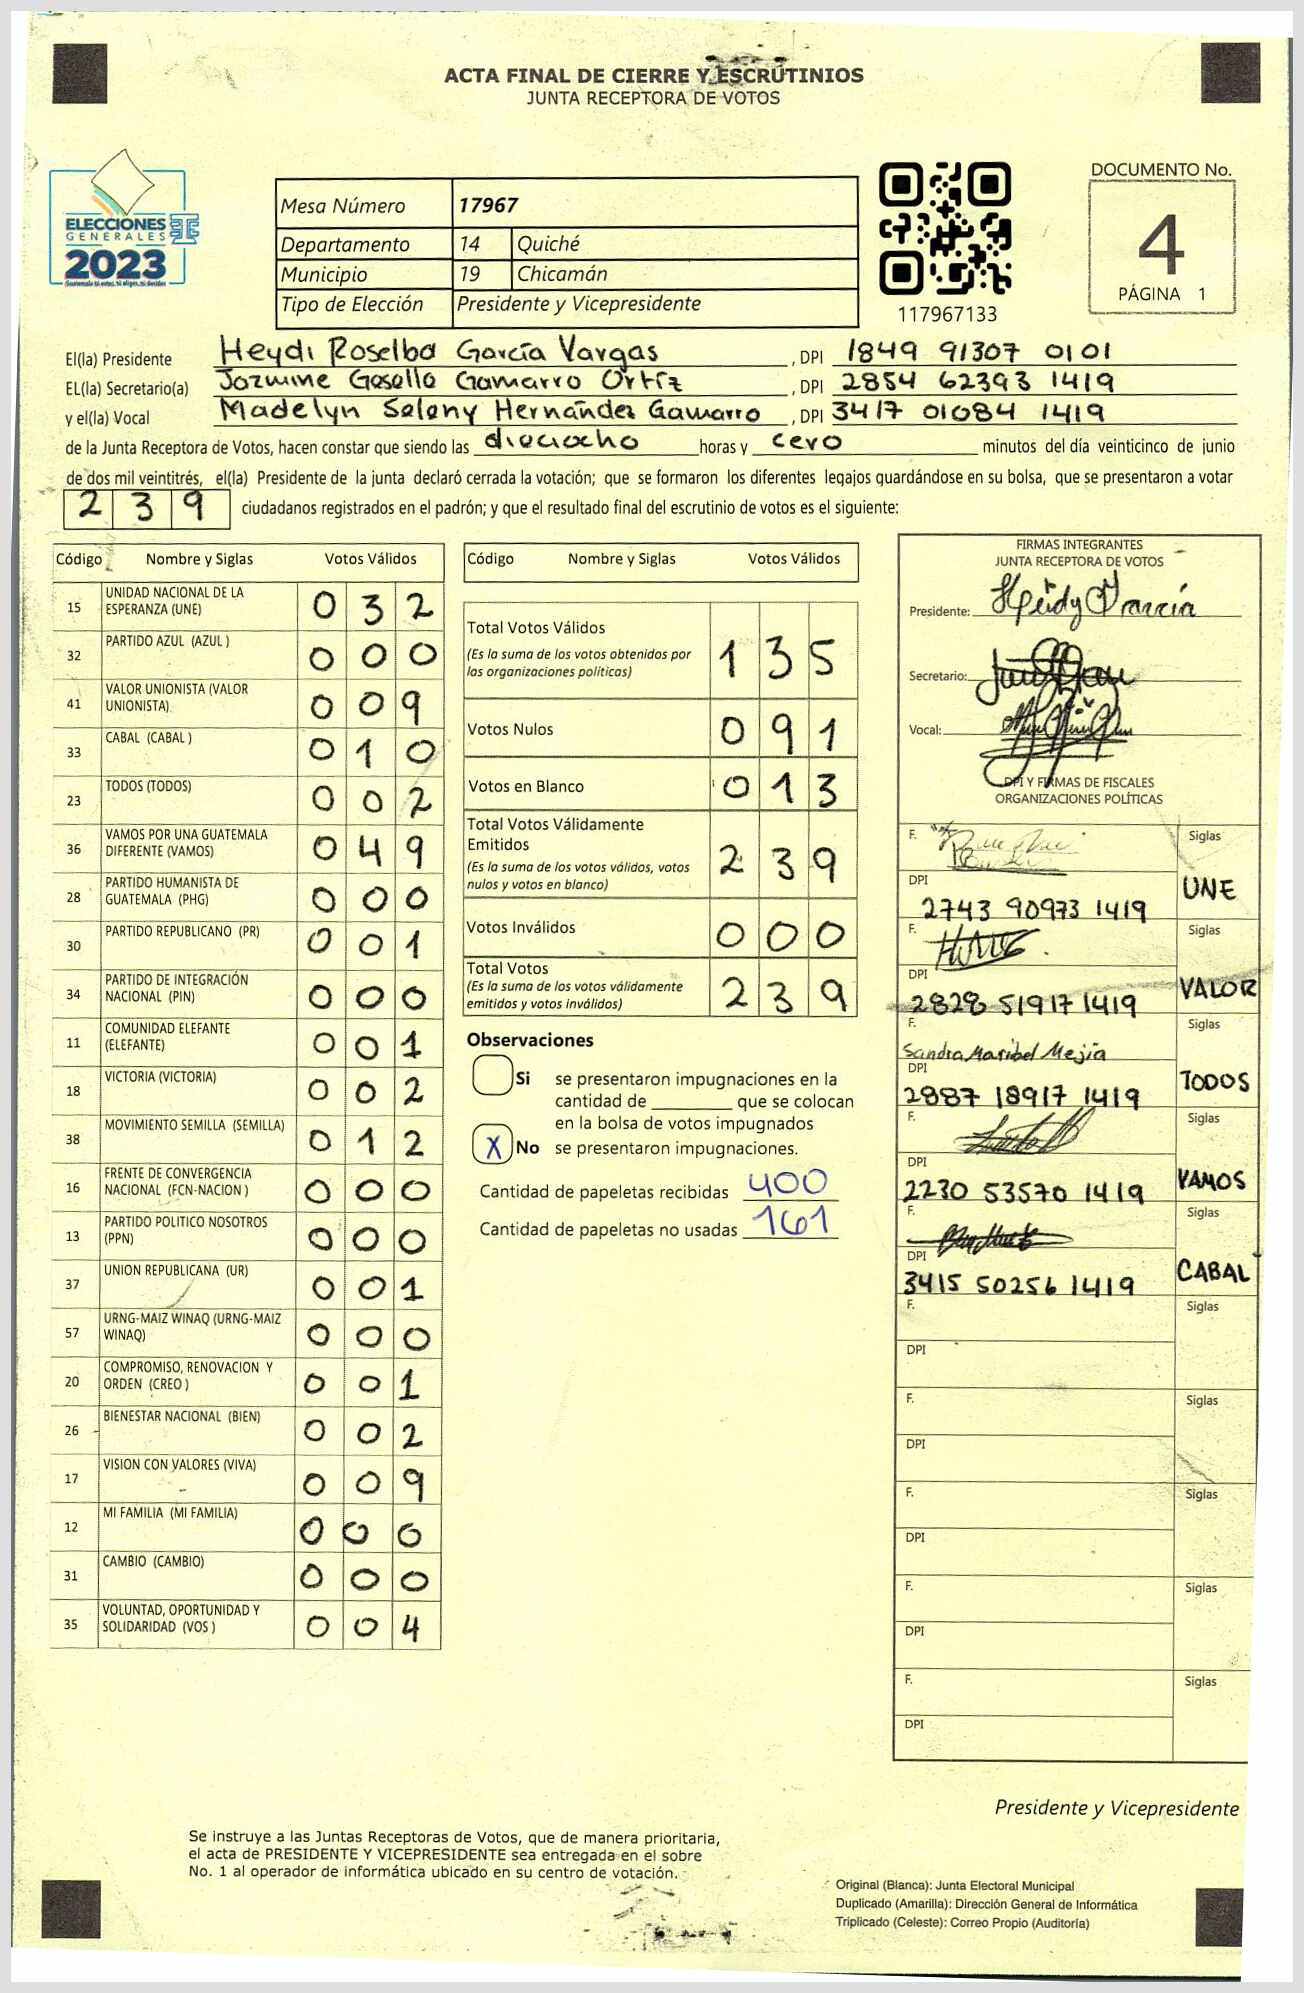 ACTA FINAL DE CIERRE Y ESCRUTINIOS
JUNTA RECEPTORA DE VOTOS
ELECCIONES
GENERALES
2023
Mesa Número 17967
Departamento 14 Quiché
Municipio 19 Chicamán
Tipo de Elección Presidente y Vicepresidente
117967133
DOCUMENTO No.
4
PÁGINA 1
El(la) Presidente Heydi Roselba García Vargas, DPI 1849 91307 0101
EL(la) Secretario(a) Jazmine Gesella Gamarro Ortíz, DPI 2854 62393 1419
y el(la) Vocal Madelyn Seleny Hernández Gamarro, DPI 3417 01084 1419
de la Junta Receptora de Votos, hacen constar que siendo las dieciocho horas y cero minutos del día veinticinco de junio
de dos mil veintitrés, el(la) Presidente de la junta declaró cerrada la votación; que se formaron los diferentes legajos guardándose en su bolsa, que se presentaron a votar
239 ciudadanos registrados en el padrón; y que el resultado final del escrutinio de votos es el siguiente:
Código Nombre y Siglas Votos Válidos
15 UNIDAD NACIONAL DE LA ESPERANZA (UNE) 032
32 PARTIDO AZUL (AZUL ) 000
41 VALOR UNIONISTA (VALOR UNIONISTA) 009
33 CABAL (CABAL ) 010
23 TODOS (TODOS) 002
36 VAMOS POR UNA GUATEMALA DIFERENTE (VAMOS) 049
28 PARTIDO HUMANISTA DE GUATEMALA (PHG) 000
30 PARTIDO REPUBLICANO (PR) 001
34 PARTIDO DE INTEGRACIÓN NACIONAL (PIN) 000
11 COMUNIDAD ELEFANTE (ELEFANTE) 001
18 VICTORIA (VICTORIA) 002
38 MOVIMIENTO SEMILLA (SEMILLA) 012
16 FRENTE DE CONVERGENCIA NACIONAL (FCN-NACION ) 000
13 PARTIDO POLITICO NOSOTROS (PPN) 000
37 UNION REPUBLICANA (UR) 001
57 URNG-MAIZ WINAQ (URNG-MAIZ WINAQ) 000
20 COMPROMISO, RENOVACION Y ORDEN (CREO ) 001
26 BIENESTAR NACIONAL (BIEN) 002
17 VISION CON VALORES (VIVA) 009
12 MI FAMILIA (MI FAMILIA) 000
31 CAMBIO (CAMBIO) 000
35 VOLUNTAD, OPORTUNIDAD Y SOLIDARIDAD (VOS ) 004
Código Nombre y Siglas Votos Válidos
Total Votos Válidos 135
(Es la suma de los votos obtenidos por las organizaciones políticas)
Votos Nulos 091
Votos en Blanco 013
Total Votos Válidamente Emitidos 239
(Es la suma de los votos válidos, votos nulos y votos en blanco)
Votos Inválidos 000
Total Votos 239
(Es la suma de los votos válidamente emitidos y votos inválidos)
Observaciones
Si se presentaron impugnaciones en la
cantidad de ________ que se colocan
en la bolsa de votos impugnados
X No se presentaron impugnaciones.
Cantidad de papeletas recibidas 400
Cantidad de papeletas no usadas 161
FIRMAS INTEGRANTES
JUNTA RECEPTORA DE VOTOS
Presidente: Heidy García
Secretario:
Vocal:
DPI Y FIRMAS DE FISCALES
ORGANIZACIONES POLÍTICAS
F. Siglas
DPI 2743 90973 1419 UNE
F. Siglas
DPI 2828 51917 1419 VALOR
F. Sandra Maribel Mejia Siglas
DPI 2887 18917 1419 TODOS
F. Siglas
DPI 2230 53570 1419 VAMOS
F. Siglas
DPI 3415 50256 1419 CABAL
F. Siglas
DPI
F. Siglas
DPI
F. Siglas
DPI
F. Siglas
DPI
F. Siglas
DPI
Presidente y Vicepresidente
Se instruye a las Juntas Receptoras de Votos, que de manera prioritaria,
el acta de PRESIDENTE Y VICEPRESIDENTE sea entregada en el sobre
No. 1 al operador de informática ubicado en su centro de votación.
Original (Blanca): Junta Electoral Municipal
Duplicado (Amarilla): Dirección General de Informática
Triplicado (Celeste): Correo Propio (Auditoría)